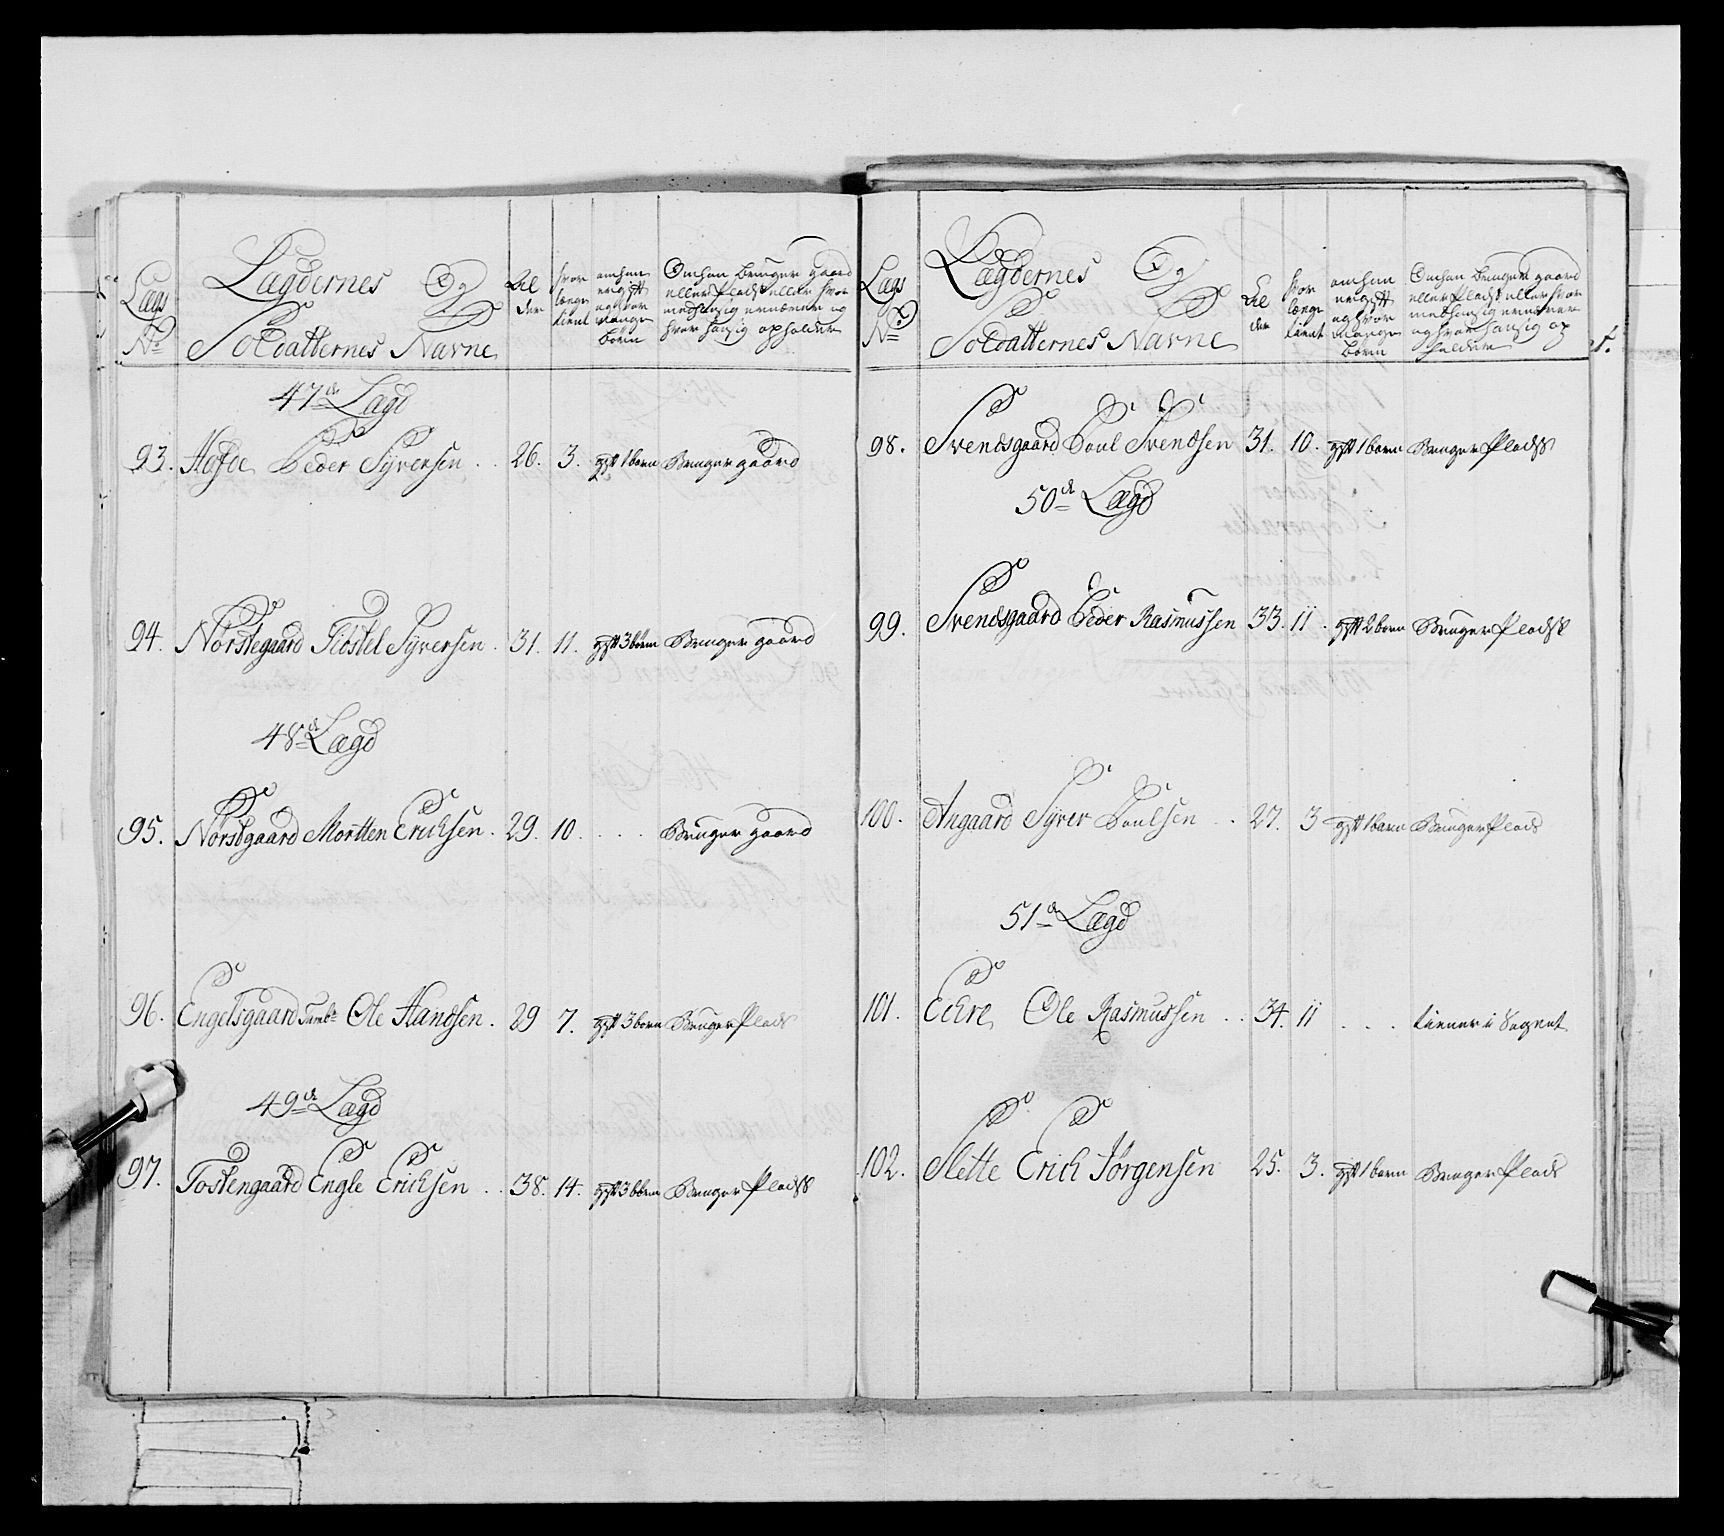 Lægs No
Lægdernes Og Soldatternes Navne
Al der
hvor længe tient
om han er gift og hvor mange børn
Om han bruger gaard eller Plads eller hvor med han sig ernærer og hvor han sig opholder
47de Lægd
93. Hofde Peder Syversen . . 26. 3. gift 1 børn Bruger gaard
94. Norstegaard Tiostel Syversen . 31. 11. gift 3 børn Bruger gaard
48de Lægd
95. Norstgaard Mortten Erichsen . 29. 10. . . . Bruger gaard
96. Engelsgaard Tambr Ole Handsen . 29 7. gift 3 børn Bruger Plads
49de Lægd
97. Tostengaard Engle Erichsen . . 38. 14. gift 3 børn Bruger Plads
Lægs No
Lægdernes Og Soldatternes Navne
Al der
hvor længe tient
om han er gift og hvor mange børn
Om han bruger gaard eller Plads eller hvor med han sig ernærer og hvor han sig op holder
98. Svendsgaard Poul Svendsen 31. 10. gift 1 børn Bruger Plads
50de Lægd
99. Svendsgaard Peder Rasmussen 33. 11. gift 2 børn Bruger Plads
100. Angaard Syver Poulsen . . 27. 3 gift 1 børn Bruger Plads
51de Lægd
101. Eckre Ole Rasmussen . . 34. 11 . . . tiener i Sognet
102. Slette Erich Jørgensen 25. 3. gift 1 børn Bruger Plads